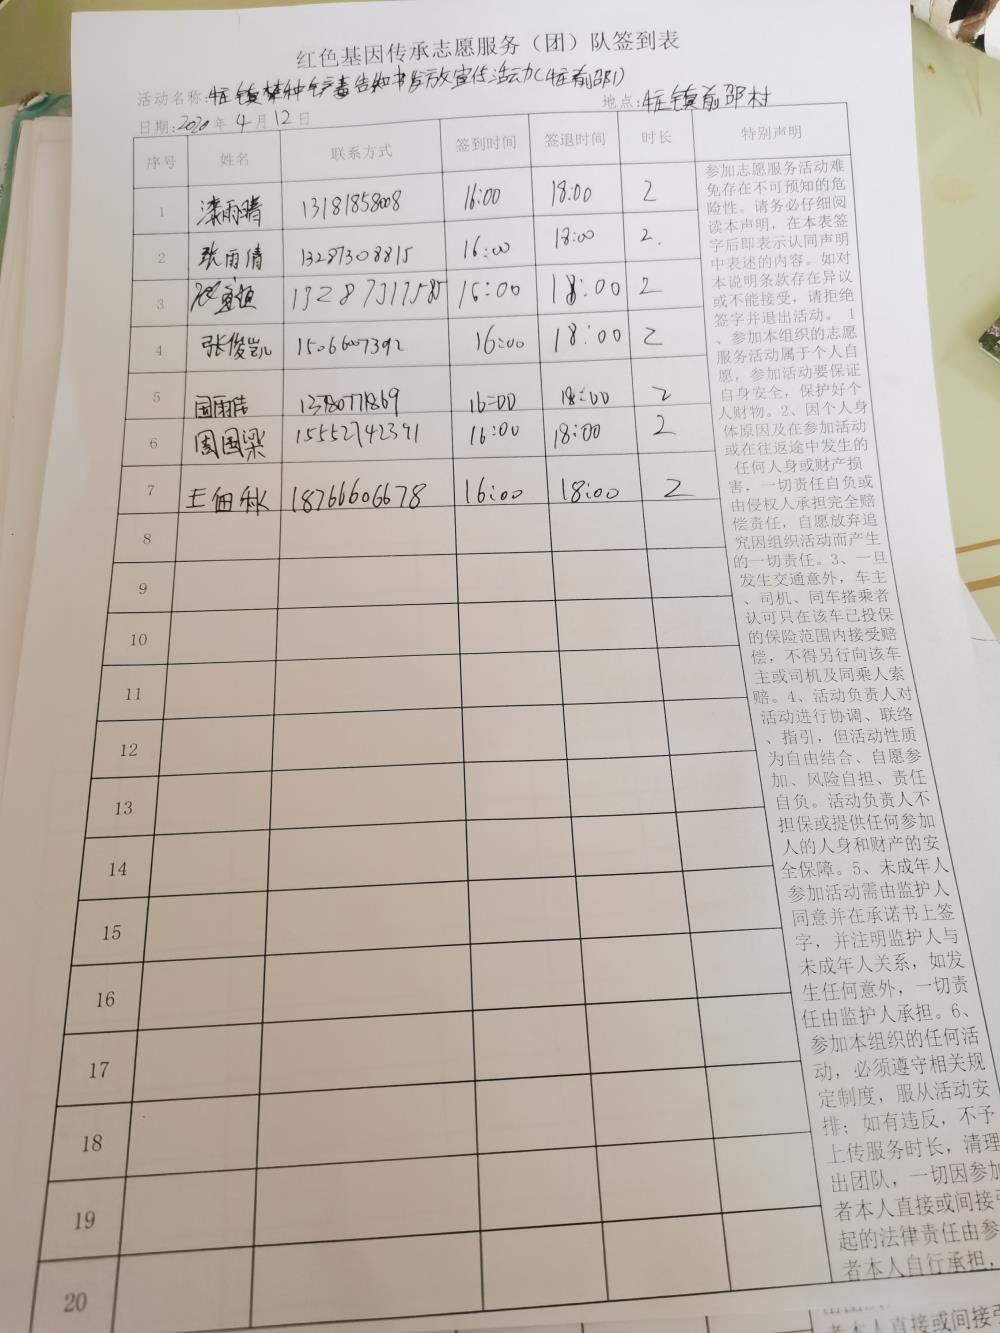 红色基因传承志愿服务（团）队签到表
活动名称：镇禁种铲毒告知书发放宣传活动（前邵）
日期：2020年4月12日 地点：镇前邵村
序号 姓名 联系方式 签到时间 签退时间 时长 特别声明
1 漆雨晴 13181858008 16:00 18:00 2
2 张雨倩 13287308815 16:00 18:00 2.
3 13287317585 16:00 18:00 2
4 张俊凯 15066007392 16:00 18:00 2
5 国雨洁 16:00 18:00 2
6 周国梁 15552742391 16:00 18:00 2
7 王佃秋 18766606678 16:00 18:00 2
8
9
10
11
12
13
14
15
16
17
18
19
20
参加志愿服务活动难
免存在不可预知的危
险性。请务必仔细阅
读本声明，在本表签
字后即表示认同声明
中表述的内容。如对
本说明条款存在异议
或不能接受，请拒绝
签字并退出活动。 1
、参加本组织的志愿
服务活动属于个人自
愿，参加活动要保证
自身安全，保护好个
人财物。2、因个人身
体原因及在参加活动
或在往返途中发生的
任何人身或财产损
害，一切责任自负或
由侵权人承担完全赔
偿责任，自愿放弃追
究因组织活动而产生
的一切责任。3、一旦
发生交通意外，车主
、司机、同车搭乘者
认可只在该车已投保
的保险范围内接受赔
偿，不得另行向该车
主或司机及同乘人索
赔。4、活动负责人对
活动进行协调、联络
、指引，但活动性质
为自由结合、自愿参
加、风险自担、责任
自负。活动负责人不
担保或提供任何参加
人的人身和财产的安
全保障。5、未成年人
参加活动需由监护人
同意并在承诺书上签
字，并注明监护人与
未成年人关系，如发
生任何意外，一切责
任由监护人承担。6、
参加本组织的任何活
动，必须遵守相关规
定制度，服从活动安
排；如有违反，不予
上传服务时长，清理
出团队，一切因参加
者本人直接或间接引
起的法律责任由参
者本人自行承担，
者本人直接或间接引